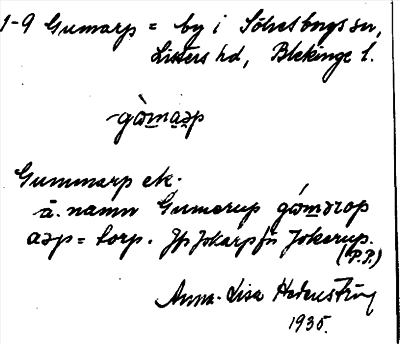 1-9 Gumarp = by i Sölvesborgs sn,
Listers hd, Blekinge l.
Gummarp etc.
ä. namn Gumerup
= torp. Jfr Jokarp fr Jokerup.
(P.P.)
Anna-Lisa Hedenström
1935.